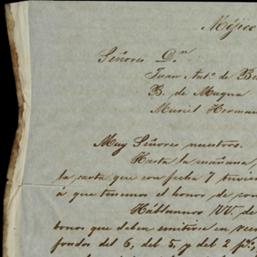 Méjico
Señores D.n
Juan Ant.o de Be
B. de Maqua
Muriel Herman
Muy Señores nuestros.
Hasta la mañana,
la carta que con fecha 7 tuvier
á que tenemos el honor de con
Háblannos VV. de
bonos que deben emitirse en
fondos del 6, del 5, y del 2 p%,